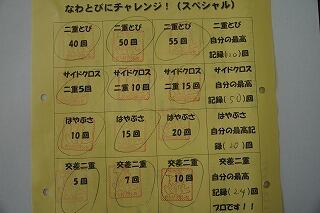 なわとびにチャレンジ！（スペシャル）
二重とび 二重とび 二重とび 二重とび
40回 50回 55回 自分の最高
記録(120)回
サイドクロス サイドクロス サイドクロス サイドクロス
二重5回 二重10回 二重15回 自分の最高
記録(50)回
はやぶさ はやぶさ はやぶさ はやぶさ
10回 15回 20回 自分の最高記
録(20)回
交差二重 交差二重 交差二重 交差二重
5回 7回 10回 自分の最高
記録(24)回
プロです！！